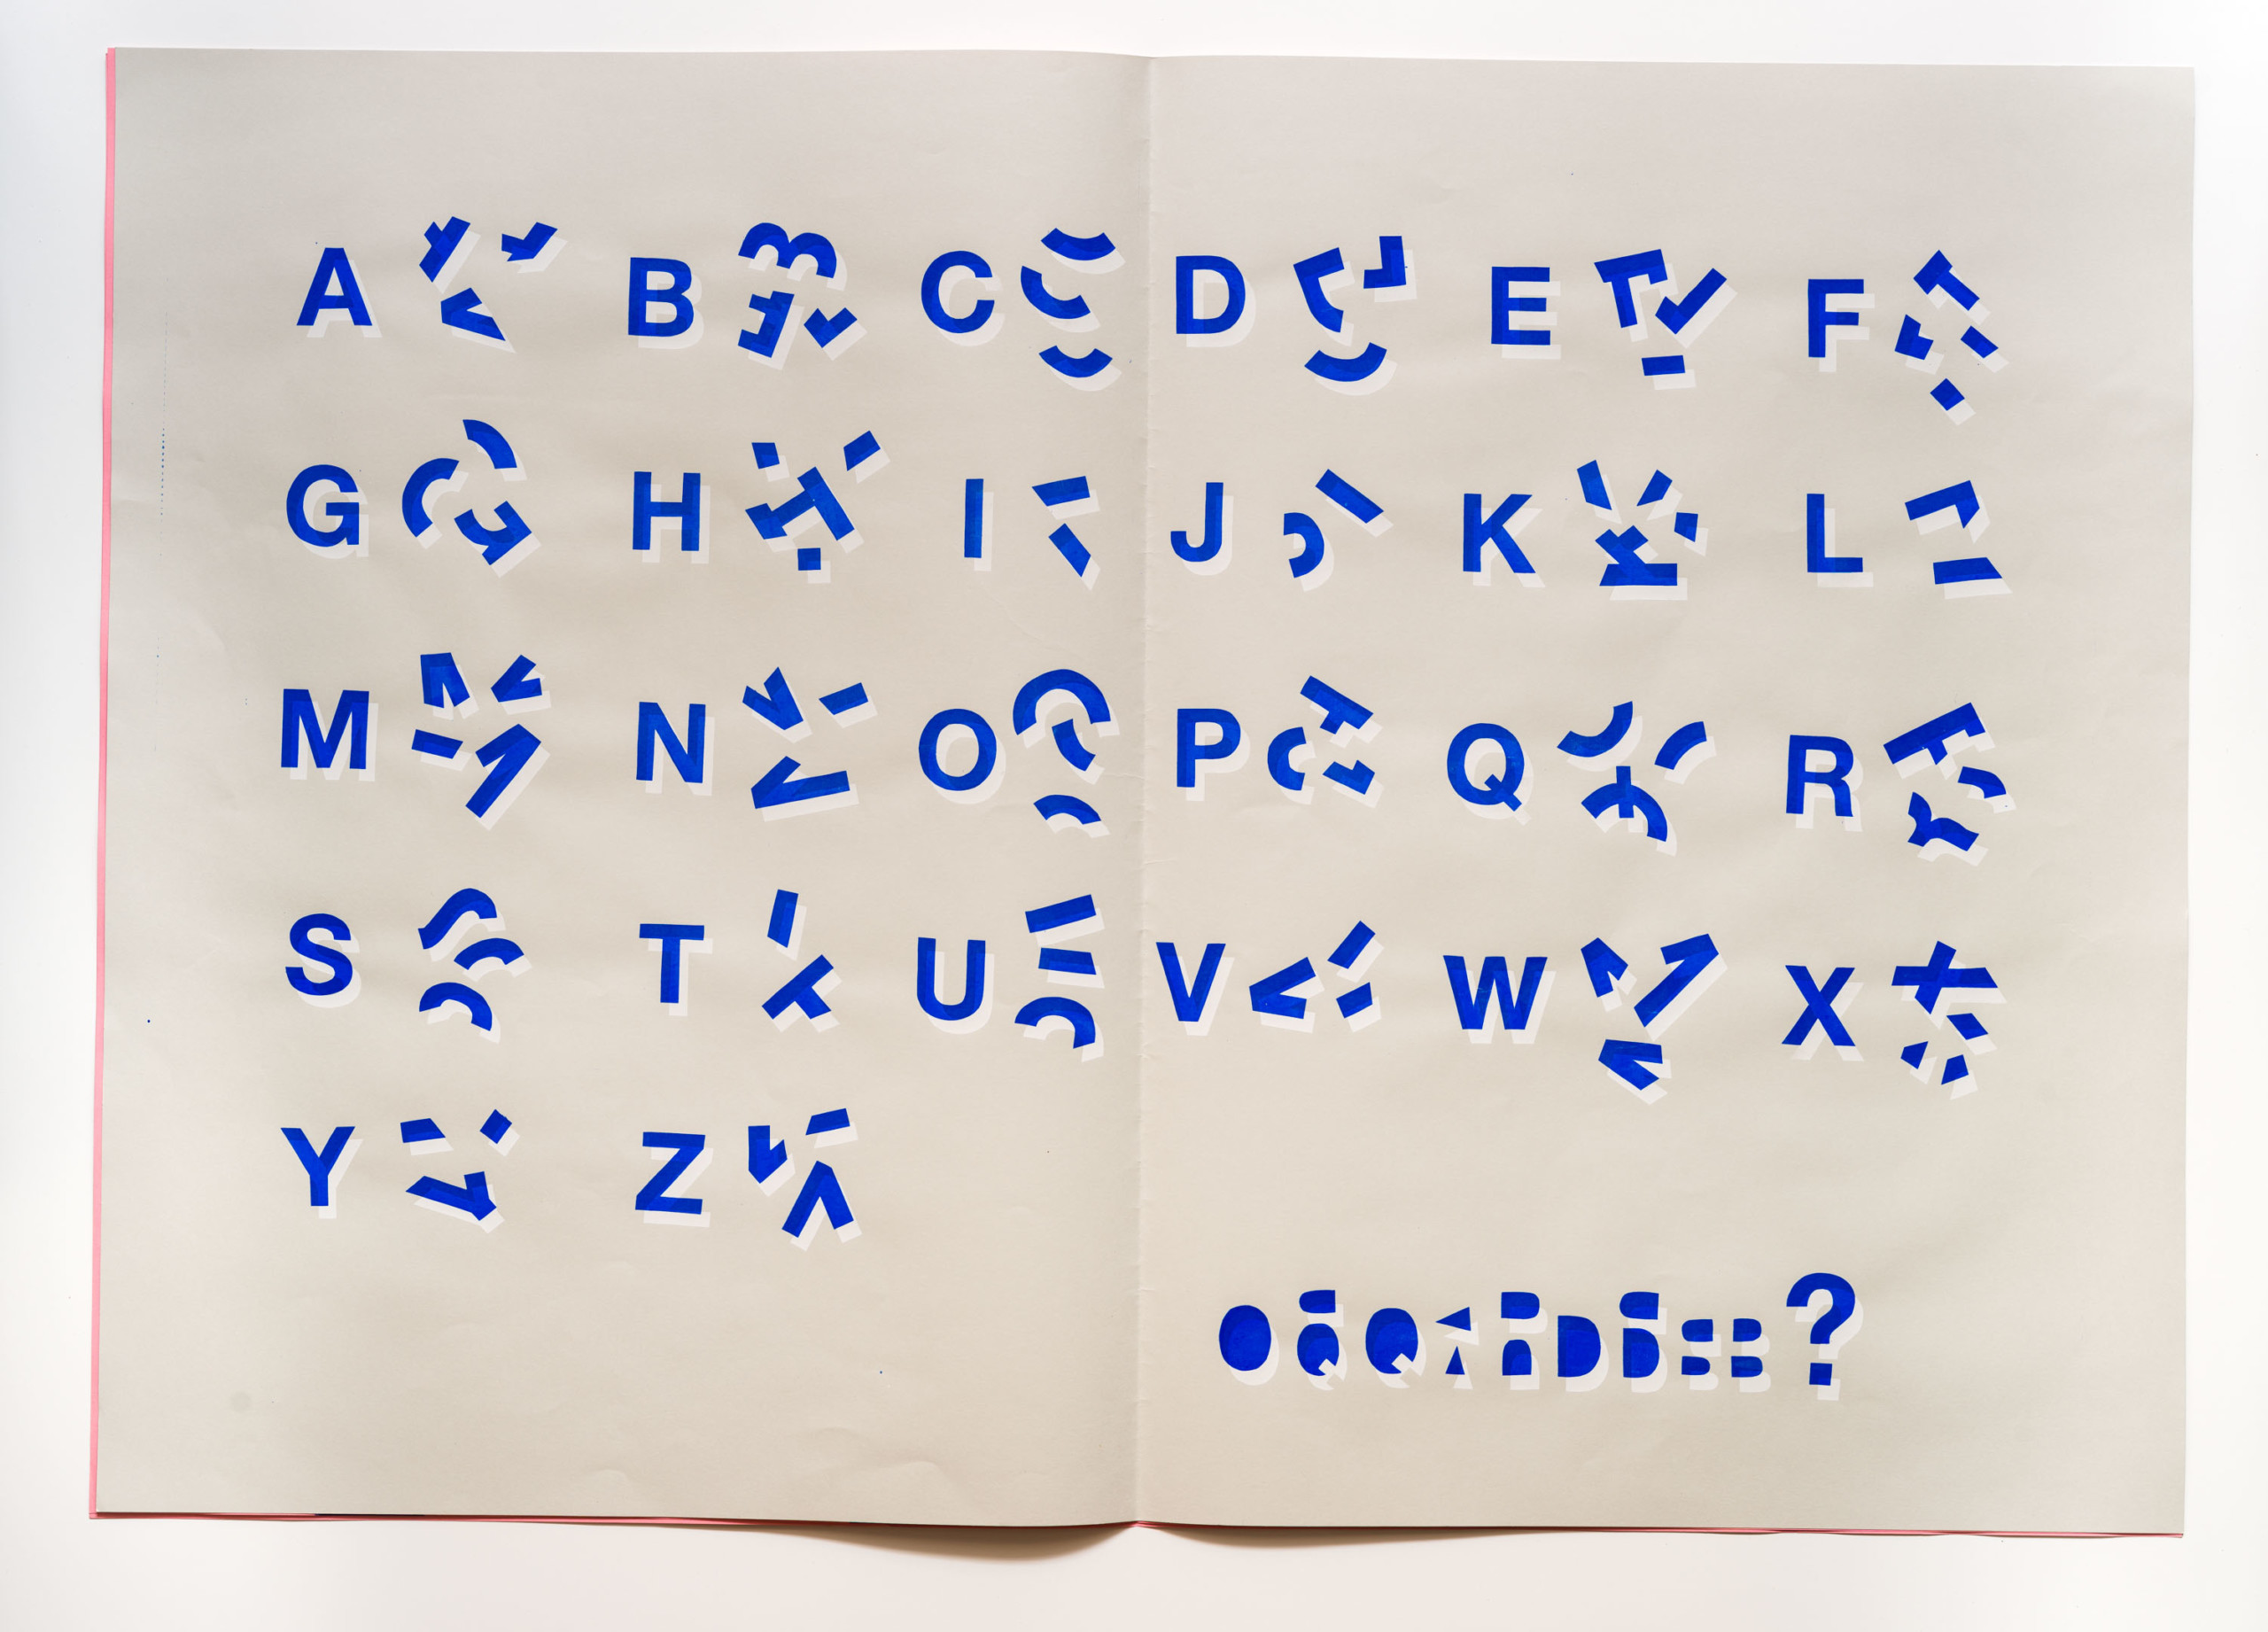 A B C D E F
G H I J K L
M N O P Q R
S T U V W X
Y Z
?